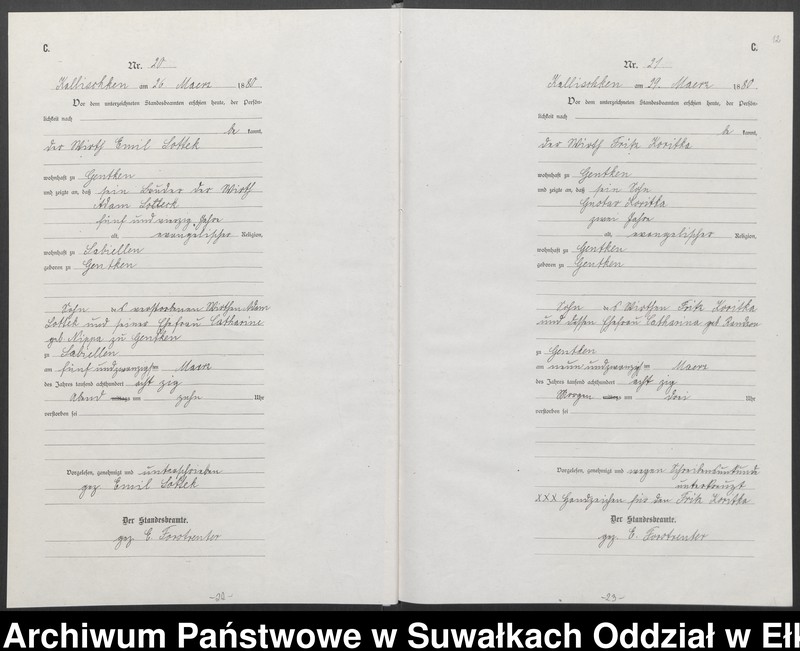 C.
Nr. 20
Kallischken am 26 Maerz 1880
Vor dem unterzeichneten Standesbeamten erschien heute, der Persön-
lichkeit nach
be kannt,
der Wirth Emil Lottek
wohnhaft zu Gentken
und zeigte an, daß sein Bruder der Wirth
Adam Lotteck
fünf und vierzig Jahre
alt, evangelischer Religion,
wohnhaft zu Sabiellen
geboren zu Gentken
Sohn des verstorbenen Wirthen Adam
Lottek und seiner Ehefrau Catharine
geb Nippa zu Gentken
zu Sabiellen
am fünf undzwanzigsten Maerz
des Jahres tausend achthundert acht zig
Abend mittags um zehn Uhr
verstorben sei
Vorgelesen, genehmigt und unterschrieben
gez Emil Lottek
Der Standesbeamte.
gez E. Forstreuter
-22-
12
C.
Nr. 21
Kallischken am 29. Maerz 1880
Vor dem unterzeichneten Standesbeamten erschien heute, der Persön-
lichkeit nach
be kannt,
der Wirth Fritz Koritka
wohnhaft zu Gentken
und zeigte an, daß sein Sohn
Gustav Koritka
zwei Jahre
alt, evangelischer Religion,
wohnhaft zu Gentken
geboren zu Gentken
Sohn des Wirthen Fritz Koritka
und dessen Ehefrau Catharina geb
zu Gentken
am neun undzwanzigsten Maerz
des Jahres tausend achthundert acht zig
Morgen mittags um drei Uhr
verstorben sei
Vorgelesen, genehmigt und wegen Schreibensunkunde
unterkreuzt
XXX Handzeichen für den Fritz Koritka
Der Standesbeamte.
gez E. Forstreuter
-23-
Archiwum Państwowe w Suwałkach Oddział w Ełk